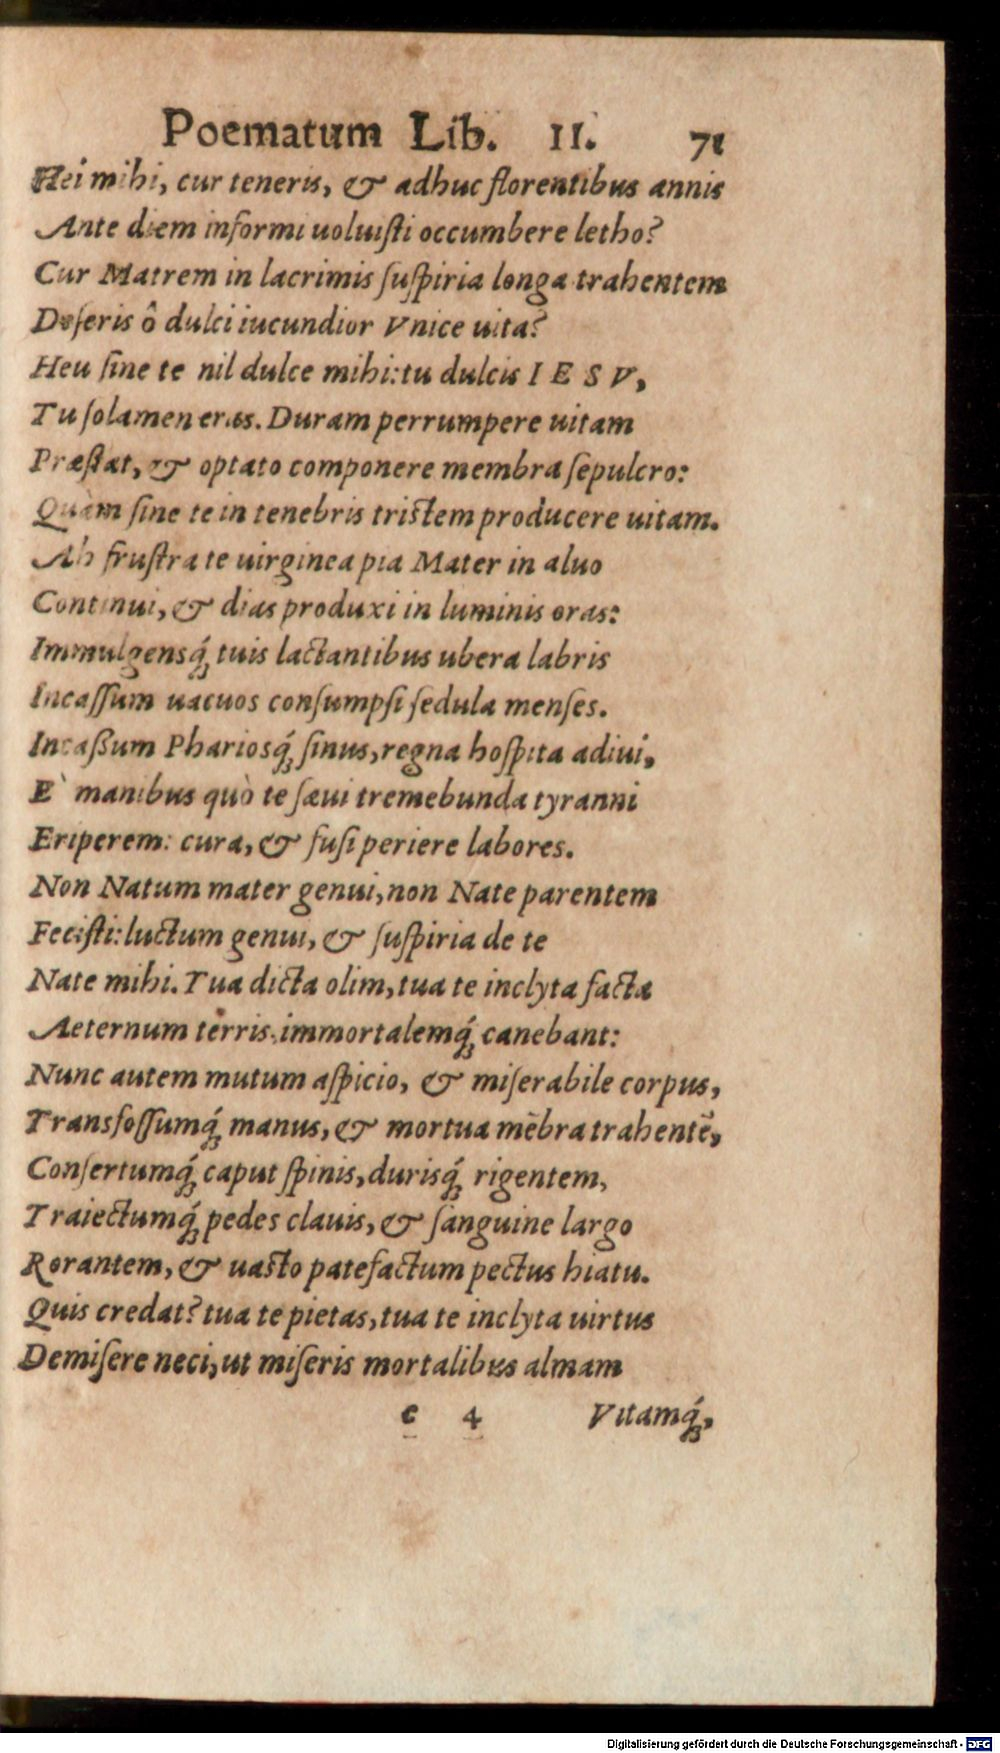 Poematum Lib. II. 71
Hei mihi, cur teneris, & adhuc florentibus annis
Ante diem informi uoluisti occumbere letho?
Cur Matrem in lacrimis suspiria longa trahentem
Deseris ô dulci iucundior Vnice uita?
Heu sine te nil dulce mihi: tu dulcis I E S V,
Tu solamen eras. Duram perrumpere uitam
Præstat, & optato componere membra sepulcro:
Quàm sine te in tenebris tristem producere uitam.
Ah frustra te uirginea pia Mater in aluo
Continui, & dias produxi in luminis oras:
Immulgensq́; tuis lactantibus ubera labris
Incassum uacuos consumpsi sedula menses.
Incaßum Phariosq́; sinus, regna hospita adiui,
E` manibus quò te sæui tremebunda tyranni
Eriperem: cura, & fusi periere labores.
Non Natum mater genui, non Nate parentem
Fecisti: luctum genui, & suspiria de te
Nate mihi. Tua dicta olim, tua te inclyta facta
Aeternum terris, immortalemq́; canebant:
Nunc autem mutum aspicio, & miserabile corpus,
Transfossumq́; manus, & mortua mēbra trahentē,
Consertumq́; caput spinis, durisq́; rigentem,
Traiectumq́; pedes clauis, & sanguine largo
Rorantem, & uasto patefactum pectus hiatu.
Quis credat? tua te pietas, tua te inclyta uirtus
Demisere neci, ut miseris mortalibus almam
c 4 Vitamq́;,
Digitalisierung gefördert durch die Deutsche Forschungsgemeinschaft - DFG